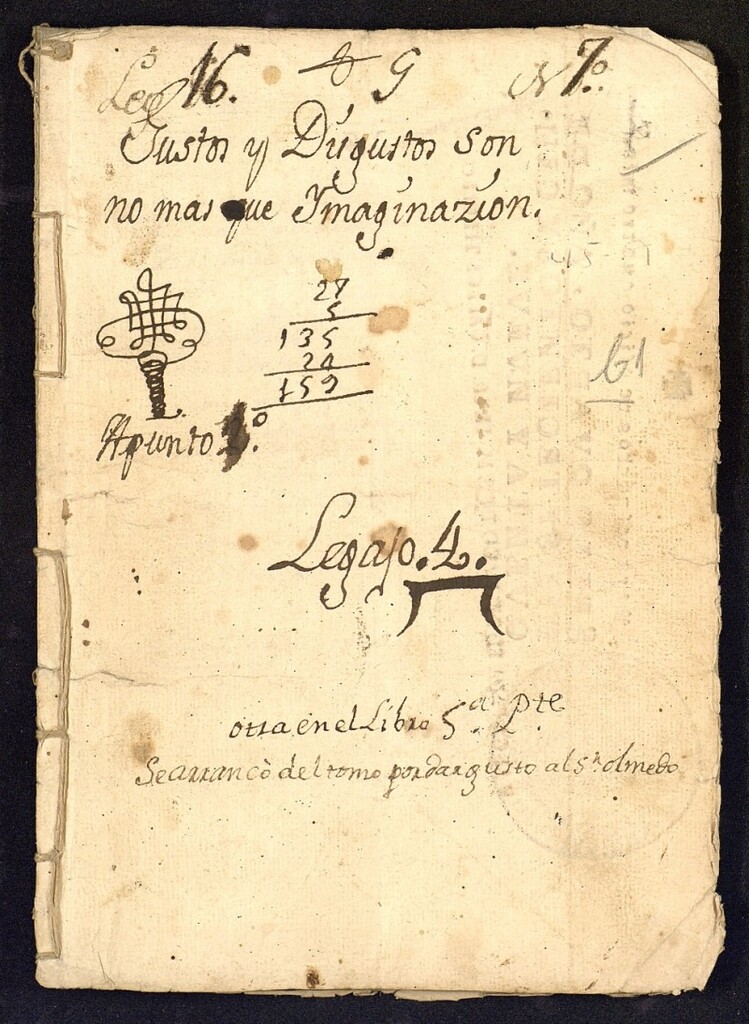 Leg 16. G N 7.º
Gustos y Disgustos son
no mas que Ymaginazion.
27
5
135
24
159
61
Apunto 1.º
Legajo. 4.
otra en el Libro 5.ª Pte
Se arrancò del tomo por dar gusto al Sr. olmedo